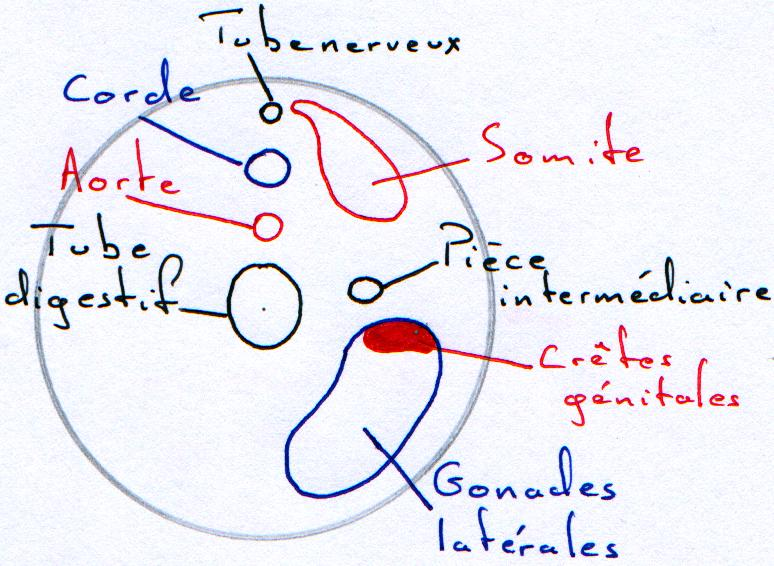 Tube nerveux
Corde
Somite
Aorte
Tube
digestif
Pièce
intermédiaire
Crêtes
génitales
Gonades
latérales